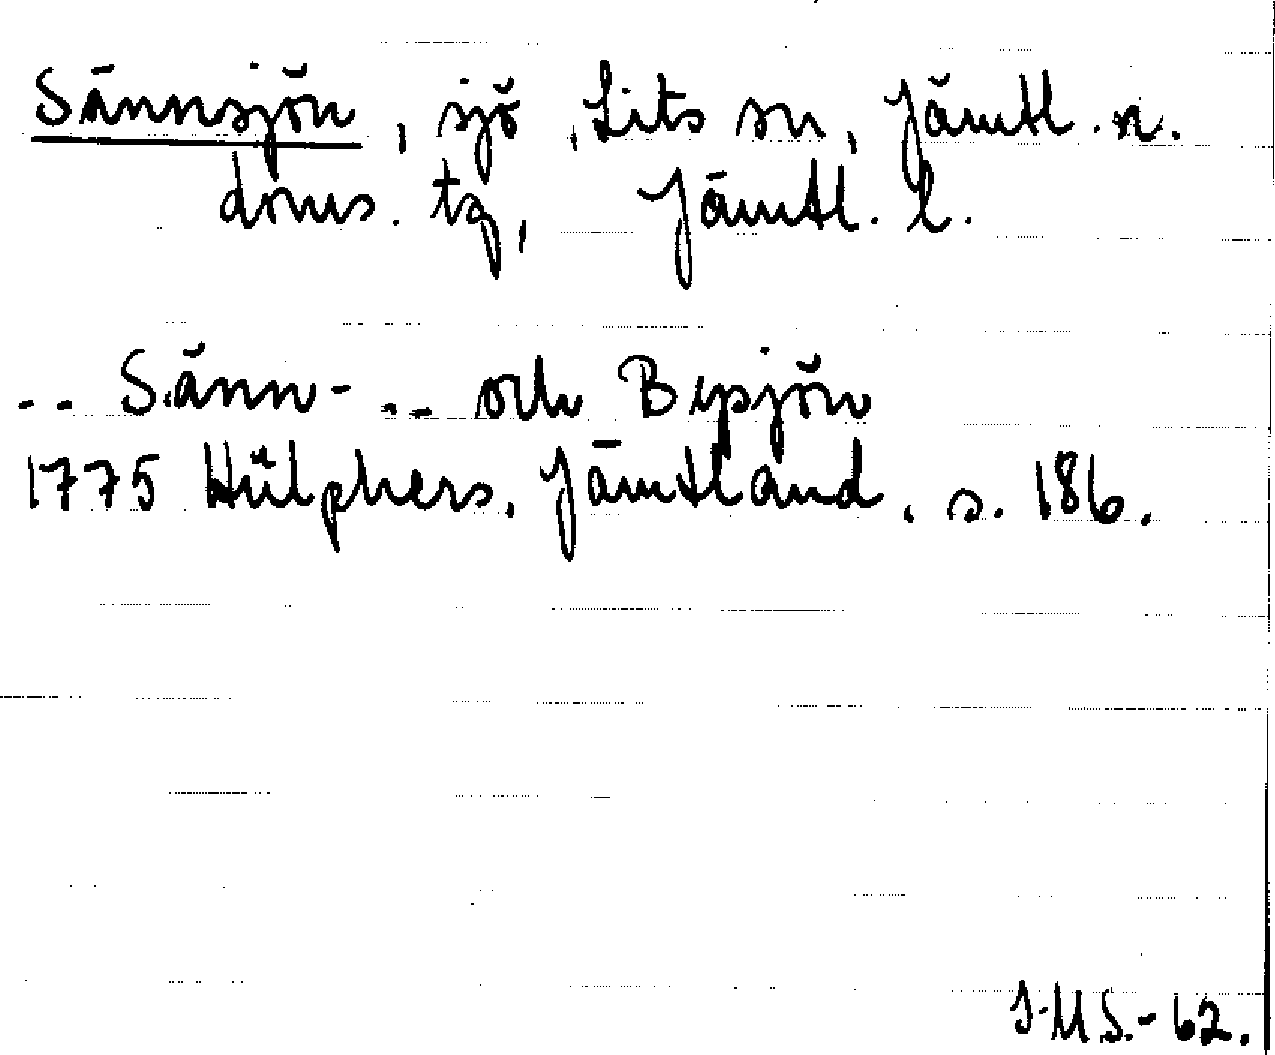 Sännsjön, sjö, Lits sn, Jämtl. n.
doms. tg, Jämtl. l.
-- Sänn- -- och Bysjön
1775 Hülphers, Jämtland, s. 186.
J.M.S.-62.